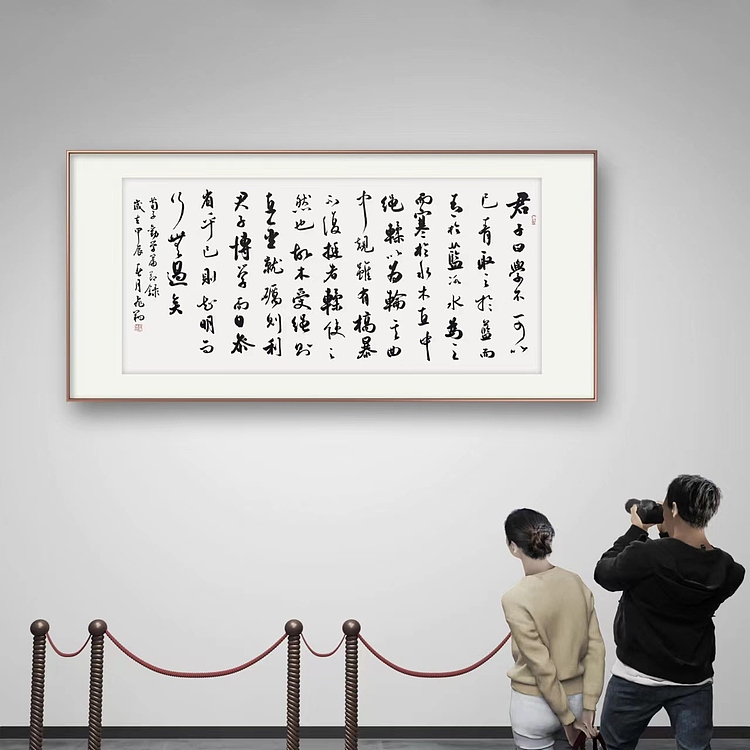 君子曰學不可以
已青取之於藍而
青於藍冰水為之
而寒於水木直中
繩輮以為輪其曲
中規雖有槁暴
不復挺者輮使之
然也故木受繩則
直金就礪則利
君子博学而日參
省乎己則知明而
行無過矣
荀子勸学篇節錄
歲在甲辰春月